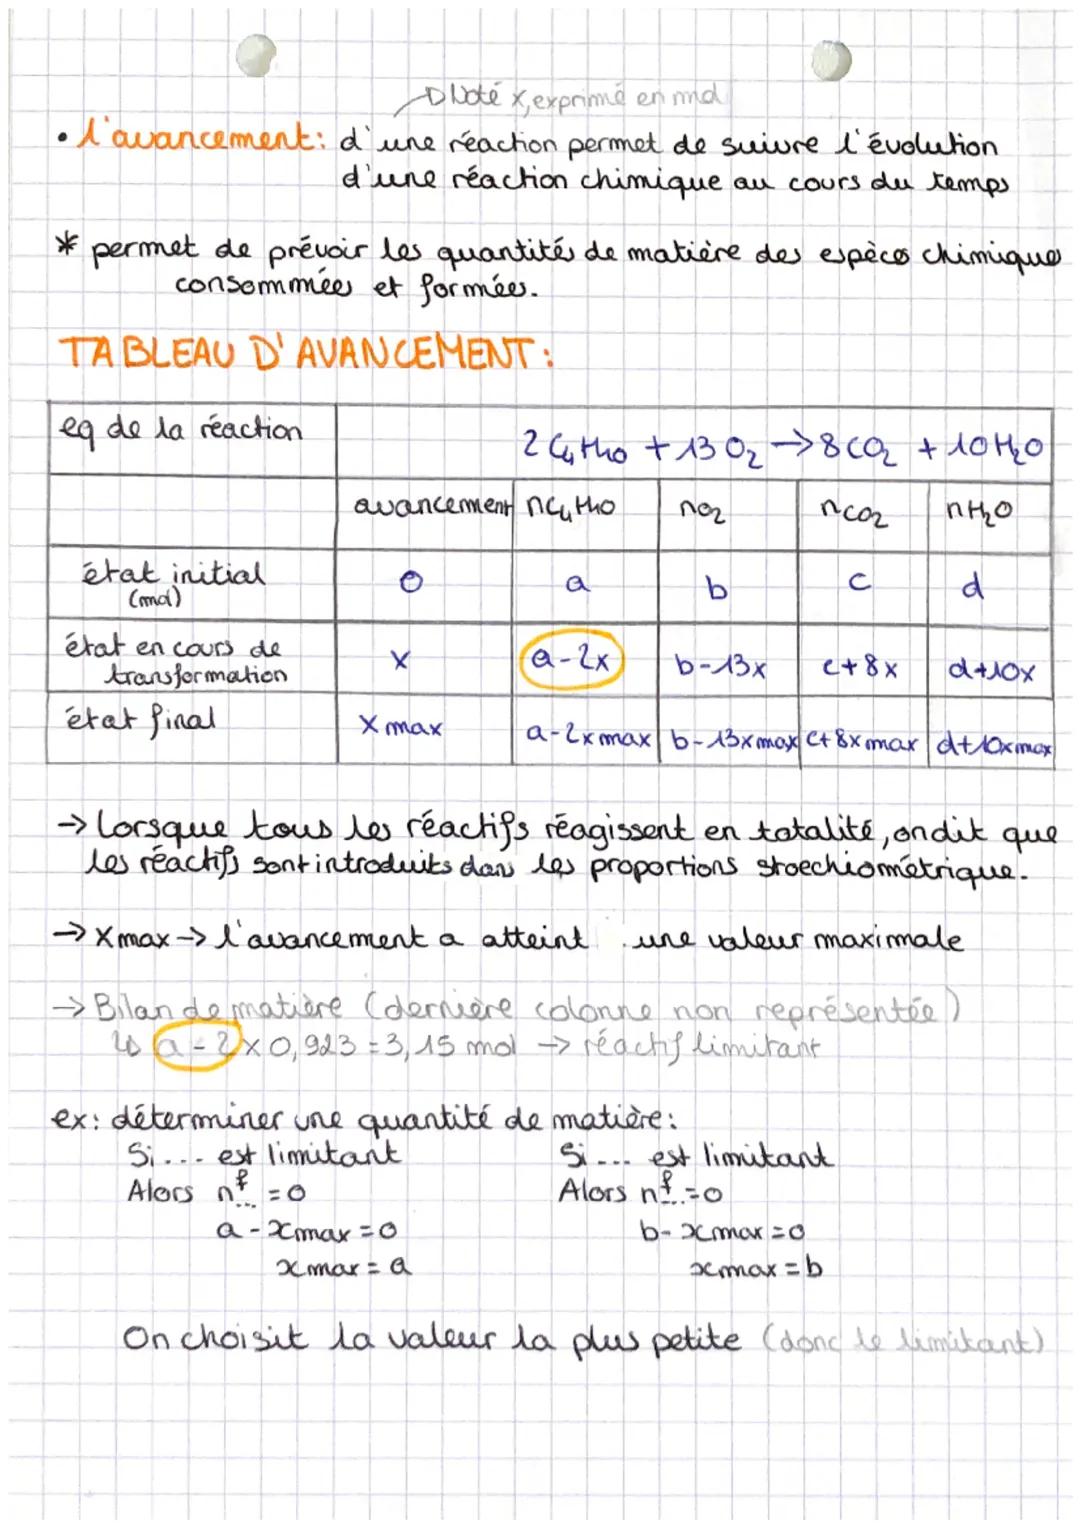 → Noté x, exprimé en mol
• l'avancement: d'une réaction permet de suivre l'évolution
d'une réaction chimique au cours du temps
* permet de prévoir les quantités de matière des espèces chimique
consommées et formées.
TABLEAU D'AVANCEMENT:
eq de la réaction 2 C4H10 + 13 O2 → 8 CO2 + 10 H2O
avancement nC4H10 nO2 nCO2 nH2O
état initial 0 a b c d
(mol)
état en cours de x a-2x b-13x c+8x d+10x
transformation
état final Xmax a-2xmax b-13xmax c+8xmax d+10xmax
→ Lorsque tous les réactifs réagissent en totalité, on dit que
les réactifs sont introduits dans les proportions stoechiométrique.
→ Xmax → l'avancement a atteint une valeur maximale
→ Bilan de matière (dernière colonne non représentée)
↳ a-2 x 0,923 = 3,15 mol → réactif limitant
ex: déterminer une quantité de matière:
Si ... est limitant Si ... est limitant
Alors nf... = 0 Alors nf... = 0
a - xmax = 0 b - xmax = 0
xmax = a xmax = b
On choisit la valeur la plus petite (donc le limitant)